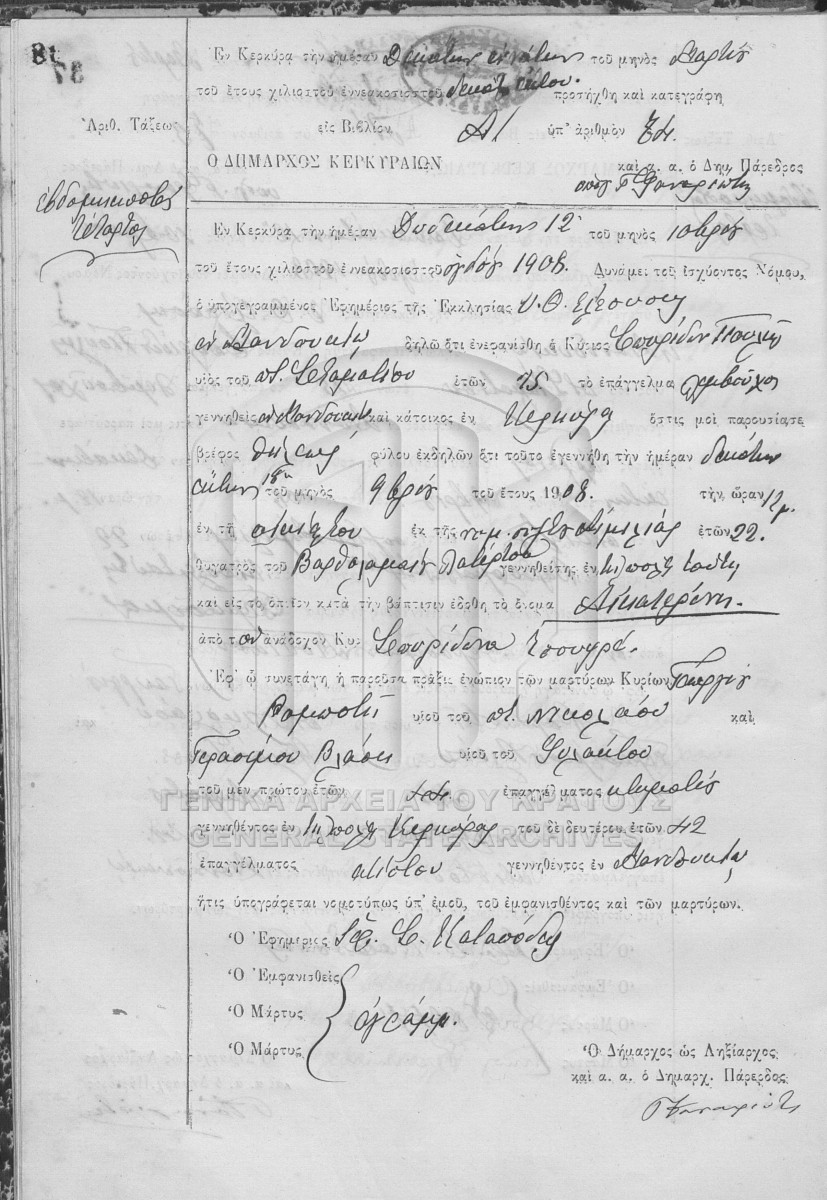 81
37
Ἐν Κερκύρᾳ τὴν ἡμέραν Δεκάτην ἐννάτην τοῦ μηνὸς Μαρτίου
τοῦ ἔτους χιλιοστοῦ ἐννεακοσιοστοῦ δεκάτου προσήχθη καὶ κατεγράφη
Ἀριθ. Τάξεως
εἰς Βιβλίον Α/ ὑπ' ἀριθμὸν 74.
Ο ΔΗΜΑΡΧΟΣ ΚΕΡΚΥΡΑΙΩΝ
καὶ ἀ. ἀ. ὁ Δημ. Πάρεδρος
ἑβδομηκοστὸς
τέταρτος
Ἐν Κερκύρᾳ τὴν ἡμέραν Δωδεκάτην 12 τοῦ μηνὸς 10βρίου
τοῦ ἔτους χιλιοστοῦ ἐννεακοσιοστοῦ ὀγδόου 1908. Δυνάμει τοῦ ἰσχύοντος Νόμου,
ὁ ὑπογεγραμμένος Ἐφημέριος τῆς Ἐκκλησίας Υ. Θ. Ἐλεούσης
ἐν Μανδουκίῳ δηλῶ ὅτι ἐνεφανίσθη ὁ Κύριος Σπυρίδων
υἱὸς τοῦ ποτ. Σταματίου ἐτῶν τὸ ἐπάγγελμα λεμβοῦχος
γεννηθεὶς ἐν Μανδουκίῳ καὶ κάτοικος ἐν Κερκύρᾳ ὅστις μοὶ παρουσίασε
βρέφος θήλεως φύλου ἐκδηλῶν ὅτι τοῦτο ἐγεννήθη τὴν ἡμέραν δεκάτην
τοῦ μηνὸς 9βρίου τοῦ ἔτους 1908. τὴν ὥραν 12 μ.
ἐν τῇ οἰκίᾳ του ἐκ τῆς νομ. συζύγου Αἰμιλίας ἐτῶν 22.
θυγατρὸς τοῦ Βαρθολομαίου γεννηθείσης ἐν
καὶ εἰς τὸ ὁποῖον κατὰ τὴν βάπτισιν ἐδόθη τὸ ὄνομα Αἰκατερίνη.
ἀπὸ τὸν ἀνάδοχον Κυρ Σπυρίδωνα
Ἐφ' ᾧ συνετάγη ἡ παροῦσα πρᾶξις ἐνώπιον τῶν μαρτύρων Κυρίων Γεωργίου
υἱοῦ τοῦ ποτ. Νικολάου καὶ
Γερασίμου Βλάση υἱοῦ τοῦ Φυλάκτου
τοῦ μὲν πρώτου ἐτῶν 44. ἐπαγγέλματος κτηματίας
γεννηθέντος ἐν Κερκύρας τοῦ δὲ δευτέρου ἐτῶν 42
ἐπαγγέλματος γεννηθέντος ἐν Μανδουκίῳ
ἥτις ὑπογράφεται νομοτύπως ὑπ' ἐμοῦ, τοῦ ἐμφανισθέντος καὶ τῶν μαρτύρων.
Ὁ Ἐφημέριος Ἱερ. Σ. Καταπόδης
Ὁ Ἐμφανισθεὶς
Ὁ Μάρτυς ἀγράμμ.
Ὁ Μάρτυς
Ὁ Δήμαρχος ὡς Ληξίαρχος
καὶ ἀ. ἀ. ὁ Δημαρχ. Πάρεδρος
ΓΕΝΙΚΑ ΑΡΧΕΙΑ ΤΟΥ ΚΡΑΤΟΥΣ
GENERAL STATE ARCHIVES